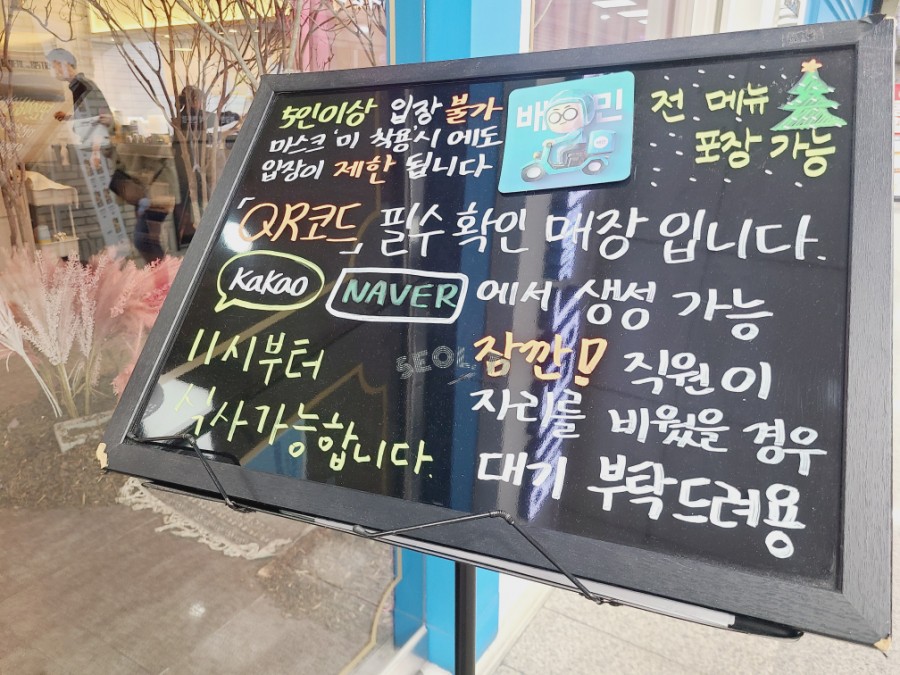 5인이상 입장 불가
마스크 미 착용시 에도
입장이 제한 됩니다
배 민
전 메뉴
포장 가능
「QR코드」 필수 확인 매장 입니다.
KaKao NAVER 에서 생성 가능
11시부터
식사가능합니다.
SEOUL
잠깐! 직원이
자리를 비웠을 경우
대기 부탁드려용